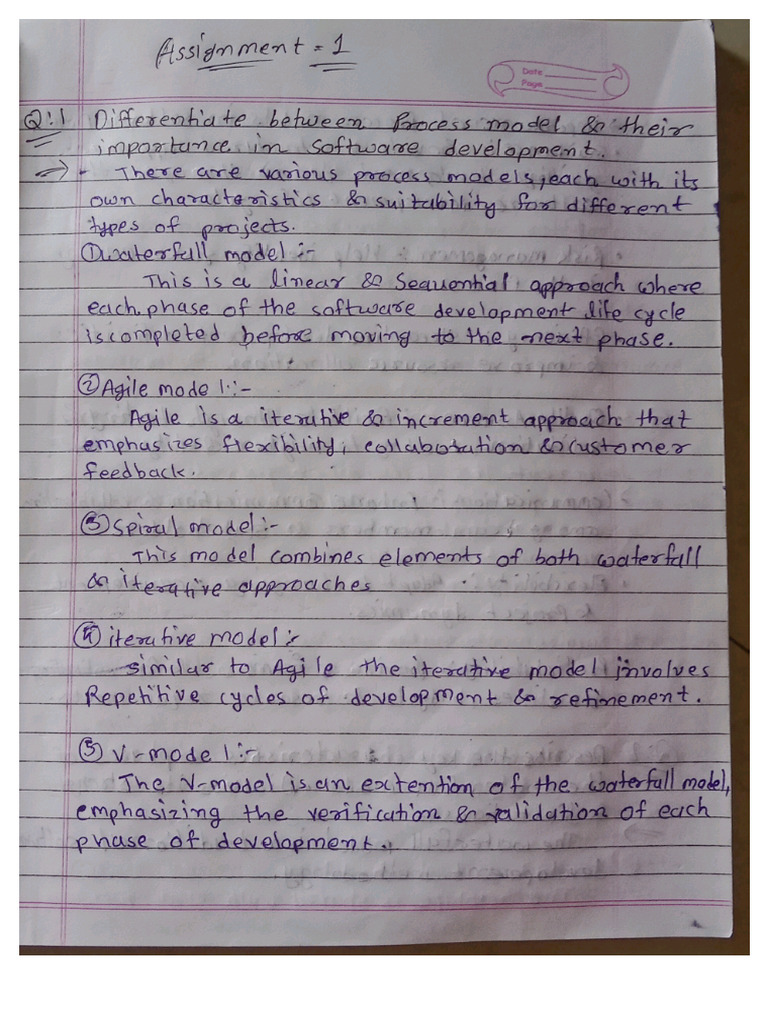 Assignment = 1
Date
Page
Q:1 Differentiate between Process model & their
importance in software development.
→ - There are various process models, each with its
own characteristics & suitability for different
types of projects.
① waterfall model :-
This is a linear & Sequential approach where
each phase of the software development life cycle
is completed before moving to the next phase.
② Agile model :-
Agile is a iterative & increment approach that
emphasizes flexibility, collaboration & customer
feedback.
③ Spiral model :-
This model combines elements of both waterfall
& iterative approaches
④ iterative model :-
similar to Agile the iterative model involves
Repetitive cycles of development & refinement.
⑤ V-model :-
The V-model is an extention of the waterfall model,
emphasizing the verification & validation of each
phase of development.